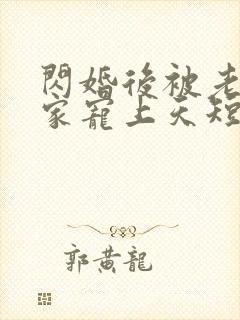 閃婚後被老
家寵上天短
郭黃龍